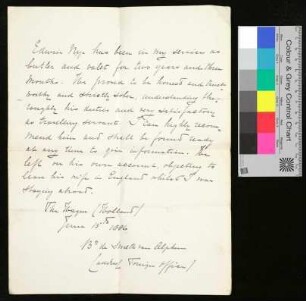 Edwin Nye has been in my service as
butler and valet for two years and three
months. He proved to be honest and trust-
worthy and strictly sober, understanding tho-
roughly his duties and very satisfactory
as travelling servant. I can highly recom-
mend him and shall be found ready
at any time to give information. He
left on his own account objecting to
leave his wife in England whilst I was
staying abroad.
The Hague (Holland)
June 15th
Bn de
Foreign Office)
Colour & Grey Control Chart